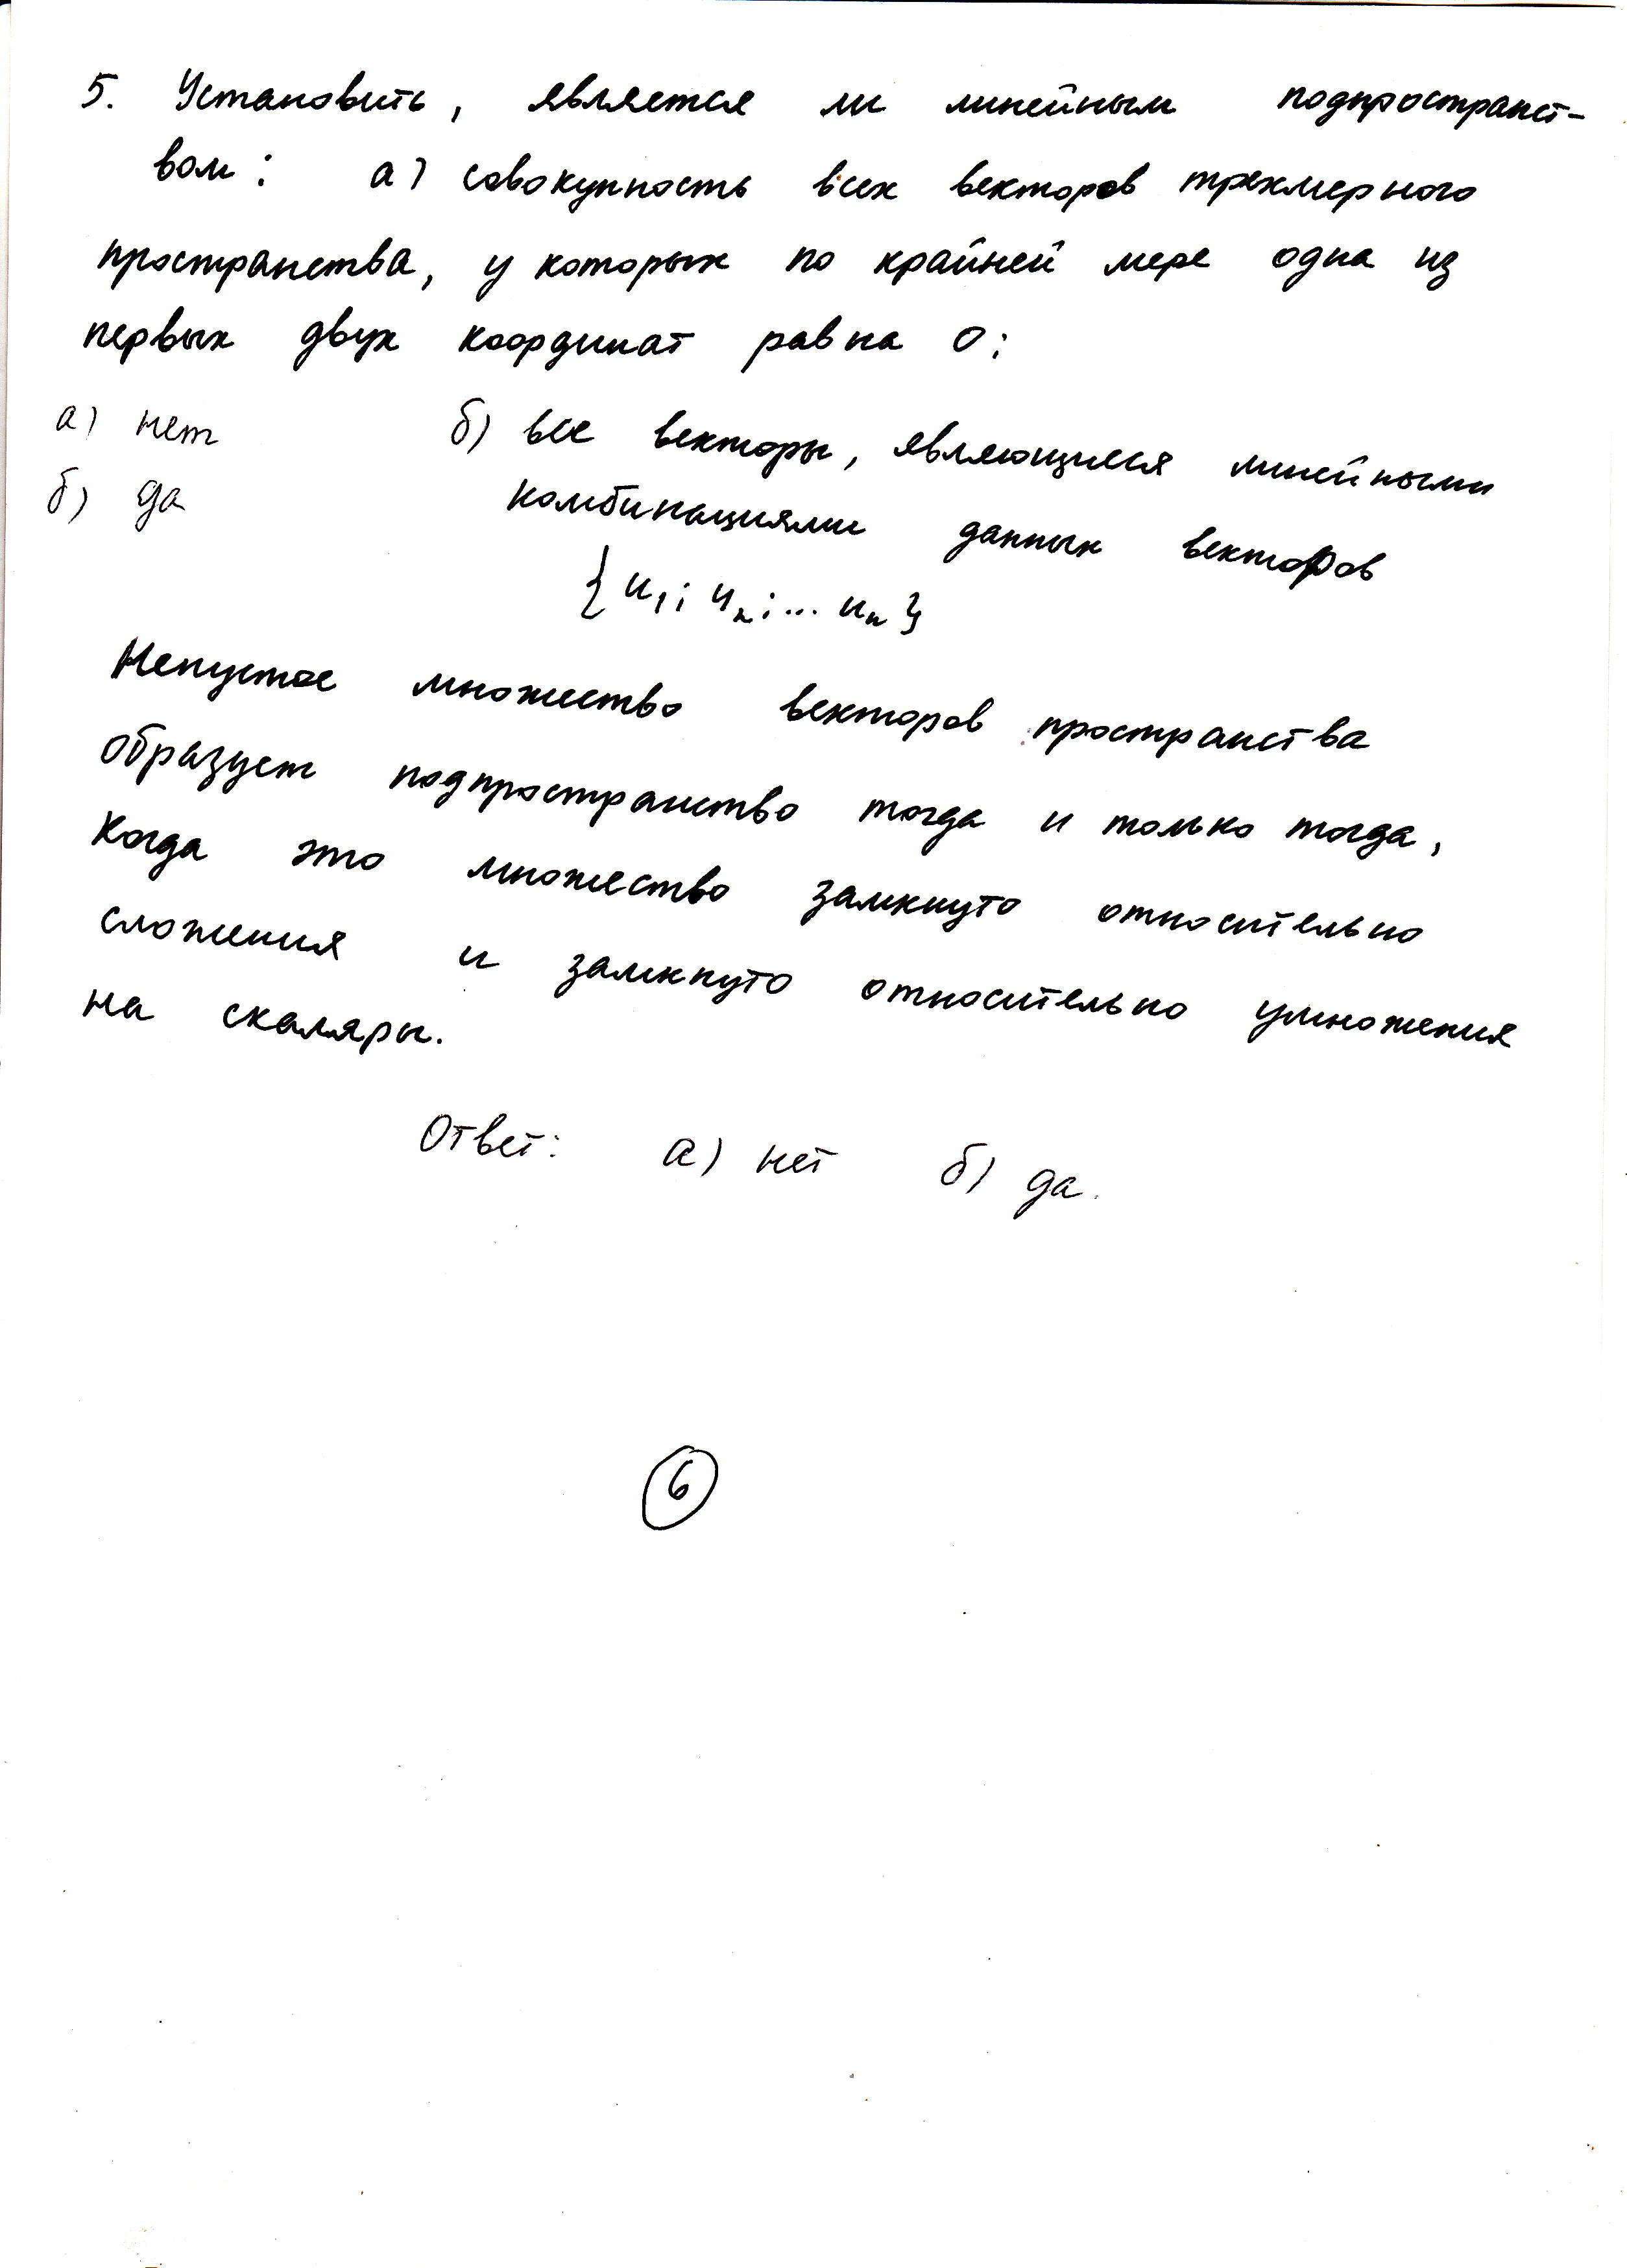 5. Установить, является ли линейным подпространст-
вом: а) совокупность всех векторов трехмерного
пространства, у которых по крайней мере одна из
первых двух координат равна 0;
а) нет
б) все векторы, являющиеся линейными
б) да
комбинациями данных векторов
{u₁; u₂; ... uₙ}
Непустое множество векторов пространства
образует подпространство тогда и только тогда,
когда это множество замкнуто относительно
сложения и замкнуто относительно умножения
на скаляры.
Ответ: а) нет б) да.
6